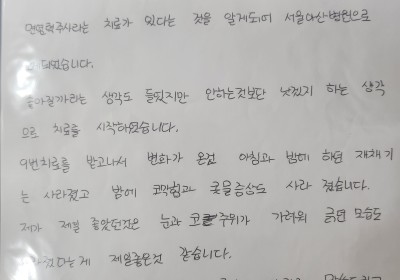 면역주사라는 치료가 있다는 것을 알게되어 서울아산병원으로
되었습니다.
좋아질까라는 생각도 들었지만 안하는것보단 낫겠지 하는 생각
으로 치료를 시작하였습니다.
9번치료를 받고나서 변화가 온것 아침과 밤에 하던 재채기
는 사라졌고 밤에 코막힘과 콧물증상도 사라 졌습니다.
제가 제일 좋았던것은 눈과 코 주위가 가려워 긁던 모습도
제일좋은것 같습니다.